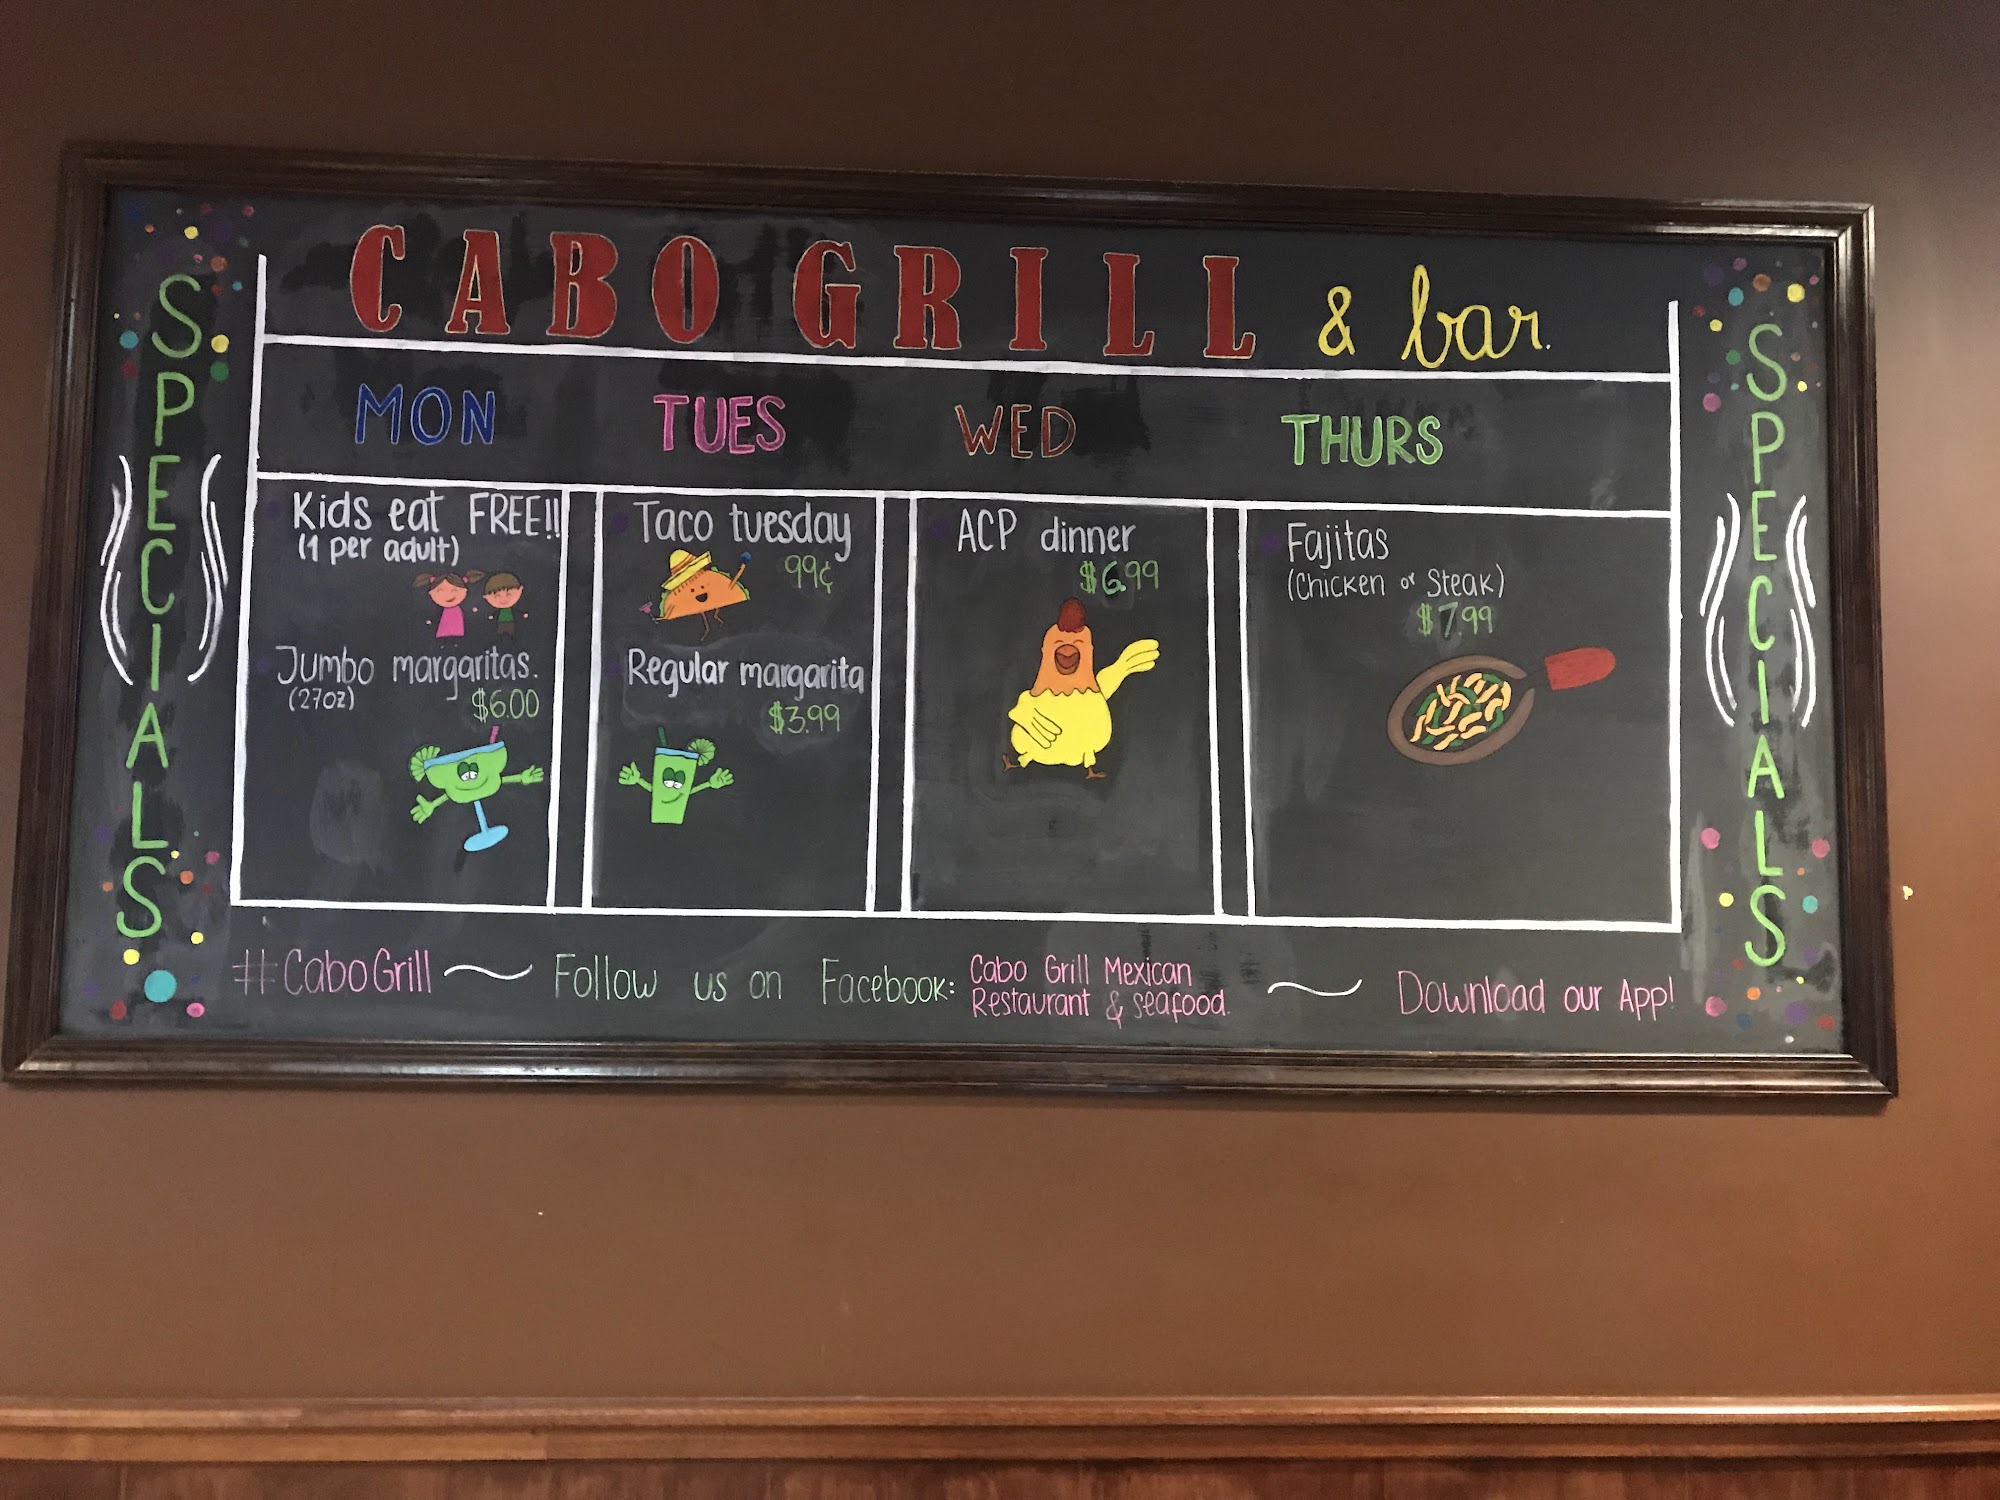 CABO GRILL & bar.
SPECIALS
MON
Kids eat FREE!!
(1 per adult)
Jumbo margaritas.
(27oz) $6.00
TUES
Taco tuesday
99¢
Regular margarita
$3.99
WED
ACP dinner
$6.99
THURS
Fajitas
(Chicken or Steak)
$7.99
SPECIALS
#CaboGrill ~ Follow us on Facebook: Cabo Grill Mexican
Restaurant & seafood. ~ Download our App!